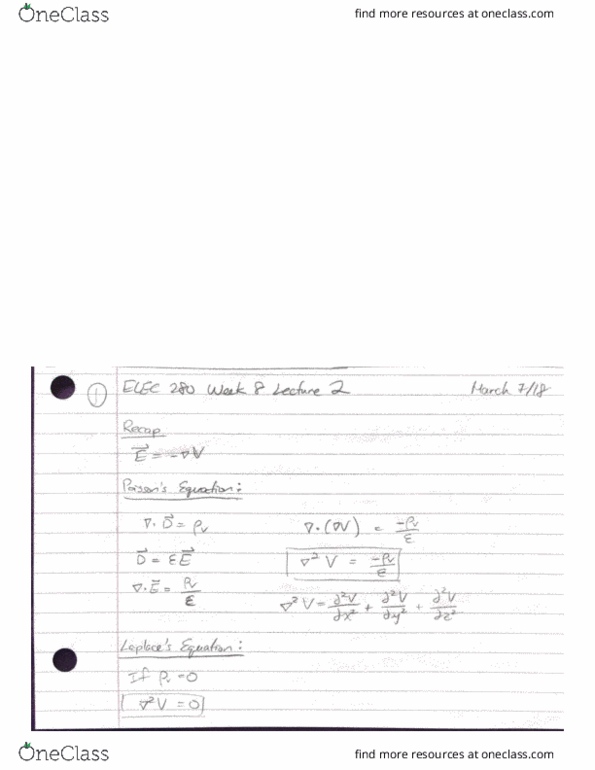 OneClass find more resources at oneclass.com
① ELEC 280 Week 8 Lecture 2 March 7/18
Recap
E⃗ = -∇V
Poison's Equation:
∇·D⃗ = ρv ∇·(∇V) = -ρv/ε
D⃗ = εE⃗ ∇²V = -ρv/ε
∇·E⃗ = ρv/ε ∇²V = ∂²V/∂x² + ∂²V/∂y² + ∂²V/∂z²
Laplace's Equation:
If ρv = 0
∇²V = 0
OneClass find more resources at oneclass.com